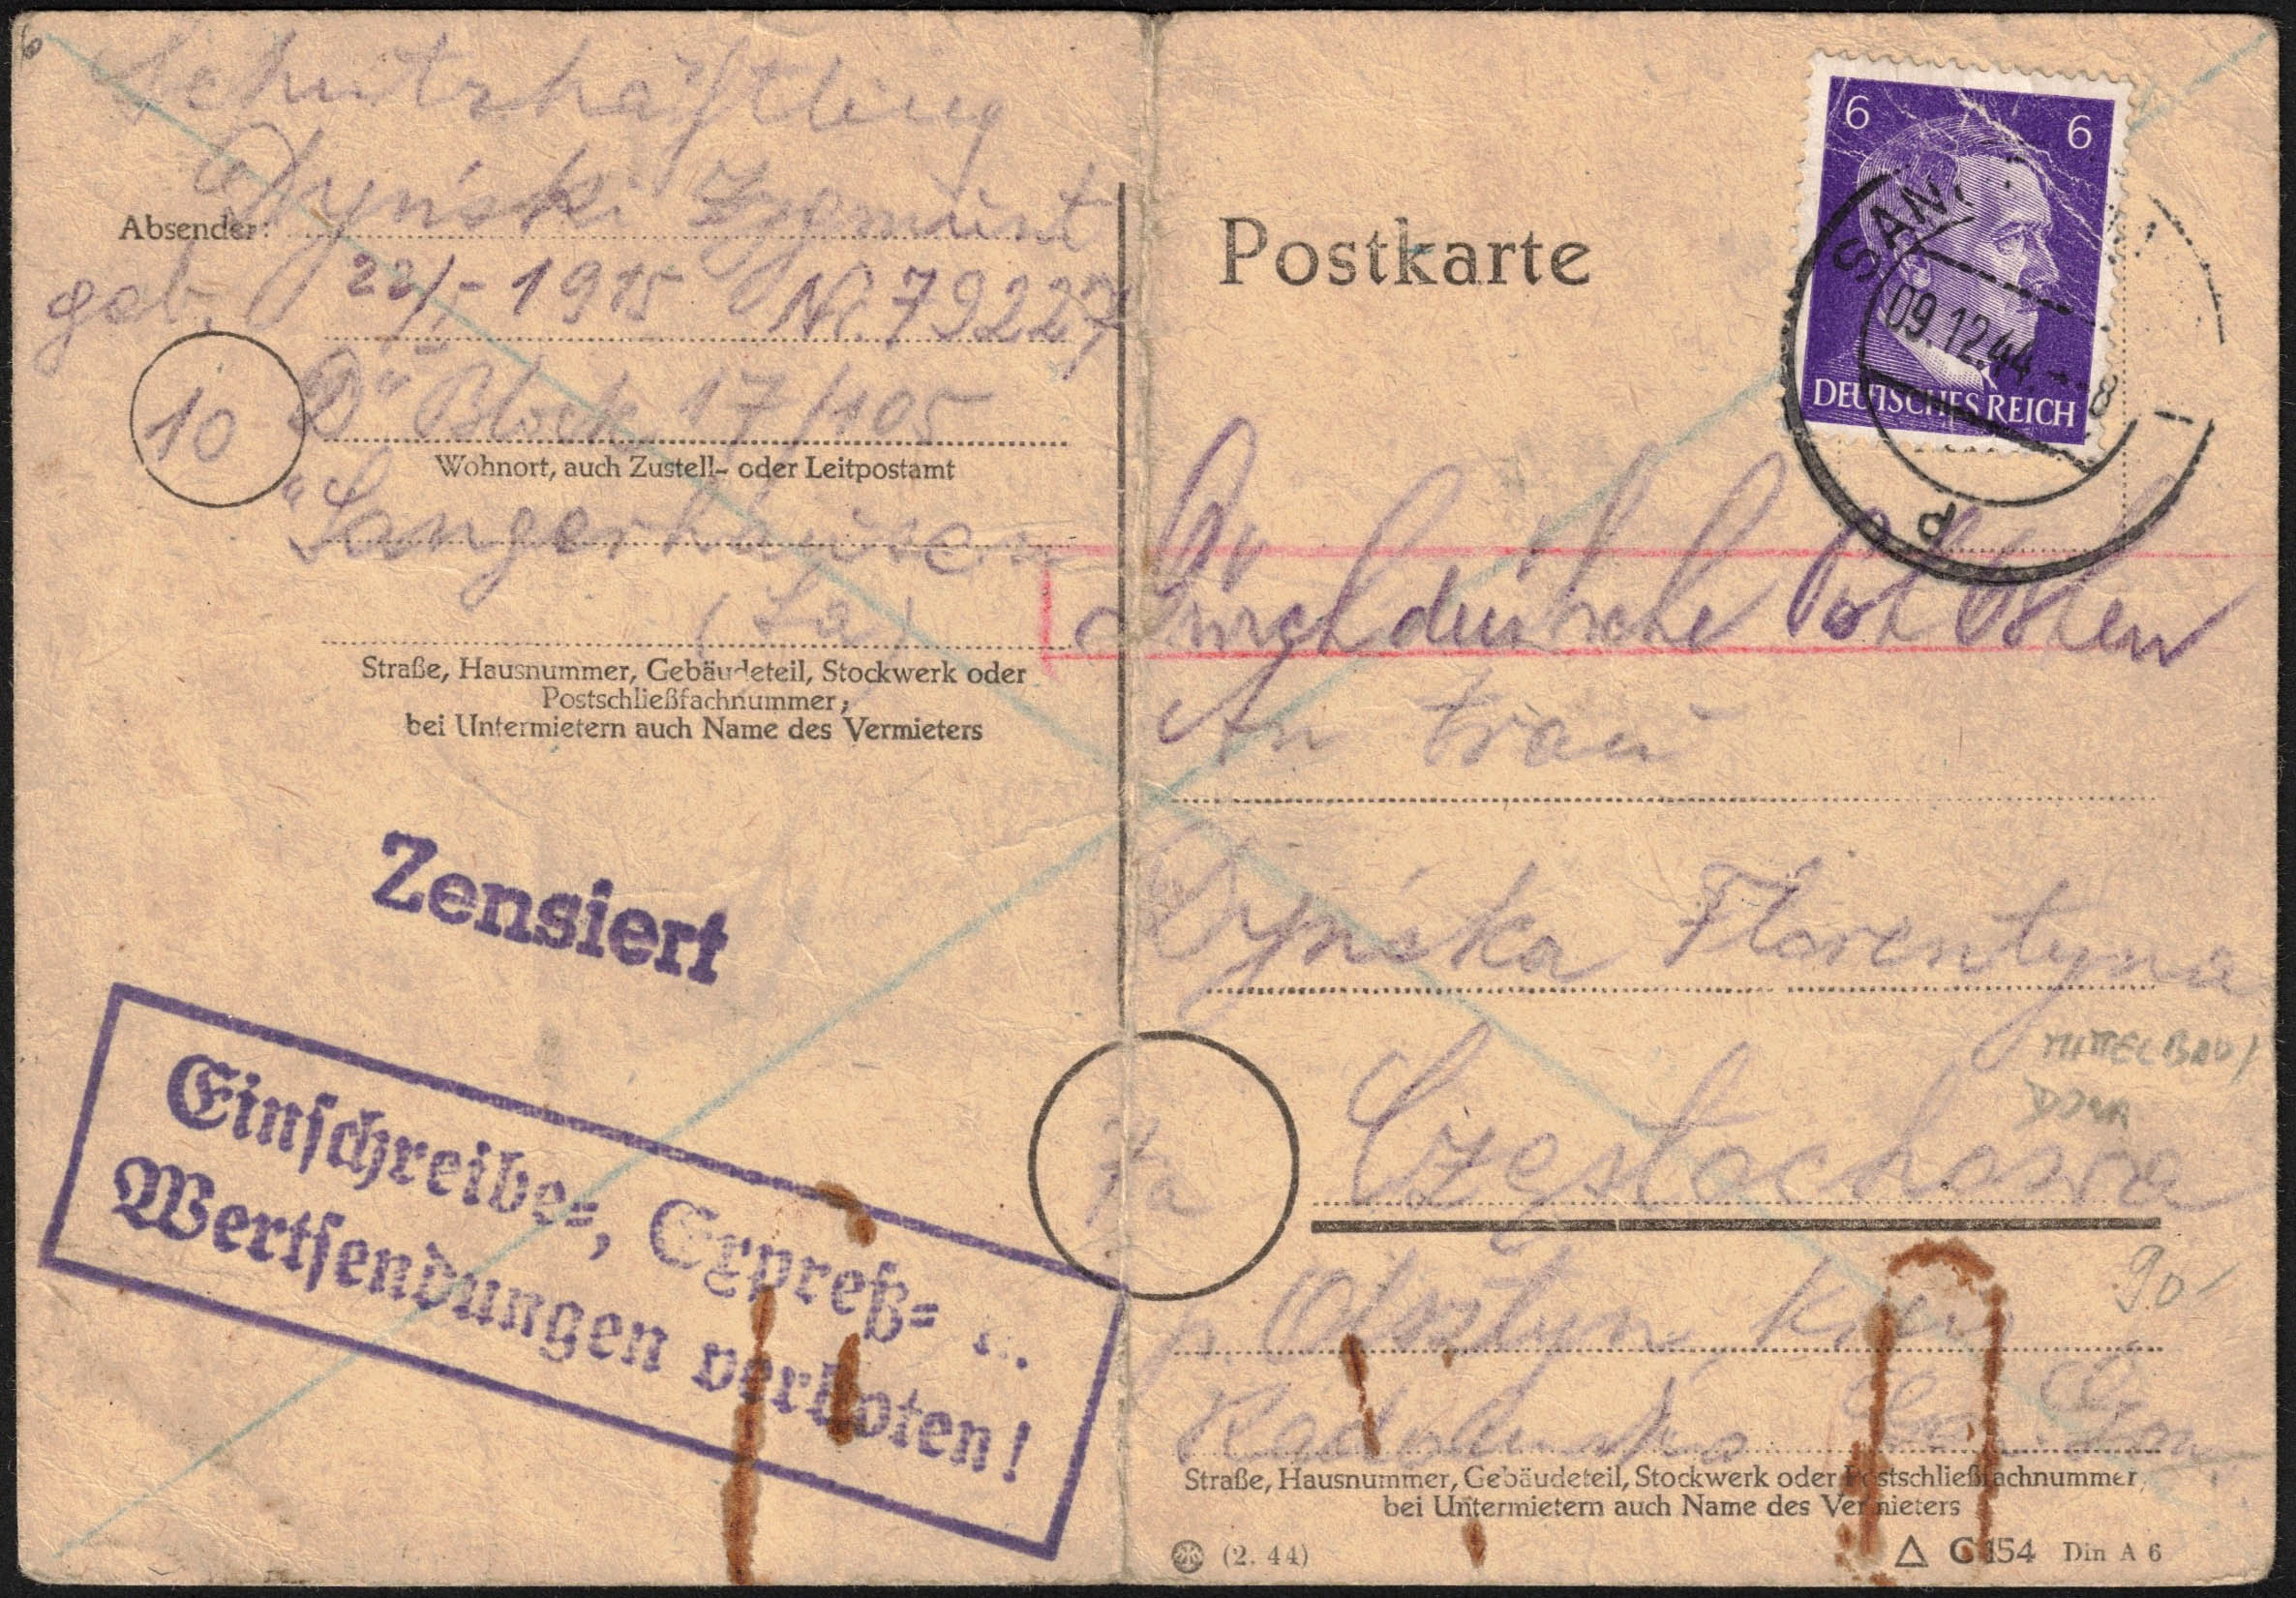 Schutzhäftling
Dyński Zygmunt
Absender:
geb. 22/I-1915 Nr. 79227
10
"D" Block 17/105
Wohnort, auch Zustell- oder Leitpostamt
"Sangerhausen
(Sa)
Straße, Hausnummer, Gebäudeteil, Stockwerk oder
Postschließfachnummer;
bei Untermietern auch Name des Vermieters
Zensiert
Einschreibe=, Expreß=
Wertsendungen verboten!
Postkarte
6 6
DEUTSCHES REICH
09.12.44.--8
d
Durch deutsche Post Osten
An Frau
Dyńska Florentyna
MITTELBAU/
DORA
7a
Częstochowa
p. Olsztyn Kreis
90
Radomsko
Straße, Hausnummer, Gebäudeteil, Stockwerk oder Postschließfachnummer,
bei Untermietern auch Name des Vermieters
(2. 44)
C 154 Din A 6